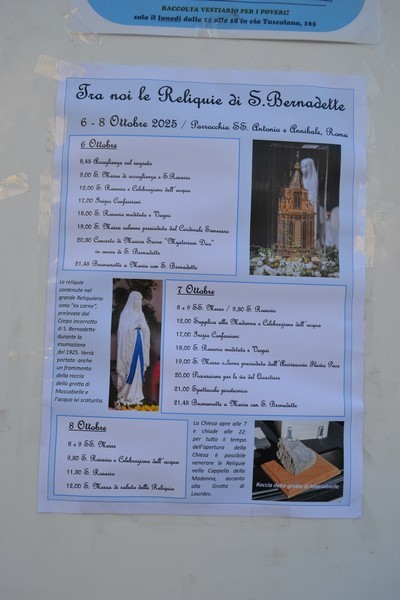 RACCOLTA VESTIARIO PER I POVERI!
solo il lunedì dalle 15 alle 18 in via Tuscolana, 145
Tra noi le Reliquie di S. Bernadette
6 - 8 Ottobre 2025 / Parrocchia SS. Antonio e Annibale, Roma
6 Ottobre
8,45 Accoglienza sul sagrato
9,00 S. Messa di accoglienza e S. Rosario
12,00 S. Rosario e Celebrazione dell'acqua
17,00 Inizio Confessioni
18,00 S. Rosario meditato e Vespri
19,00 S. Messa solenne presieduta dal Cardinale Semeraro
20,30 Concerto di Musica Sacra "Mysterium Dei"
in onore di S. Bernadette
21,45 Buonanotte a Maria con S. Bernadette
Le reliquie
contenute nel
grande Reliquiario
sono "ex carne",
prelevate dal
Corpo incorrotto
di S. Bernadette
durante la
esumazione
del 1925. Verrà
portato anche
un frammento
della roccia
della grotta di
Massabielle e
l'acqua ivi scaturita.
7 Ottobre
8 e 9 SS. Messe / 9,30 S. Rosario
12,00 Supplica alla Madonna e Celebrazione dell'acqua
17,00 Inizio Confessioni
18,00 S. Rosario meditato e Vespri
19,00 S. Messa solenne presieduta dall'Arcivescovo Flavio Pace
20,00 Processione per le vie del Quartiere
21,00 Spettacolo pirotecnico
21,45 Buonanotte a Maria con S. Bernadette
8 Ottobre
8 e 9 SS. Messe
9,30 S. Rosario e Celebrazione dell'acqua
11,30 S. Rosario
12,00 S. Messa di saluto delle Reliquie
La Chiesa apre alle 7
e chiude alle 22:
per tutto il tempo
dell'apertura della
Chiesa è possibile
venerare le Reliquie
nella Cappella della
Madonna, accanto
alla Grotta di
Lourdes.
Roccia della grotta di Massabielle